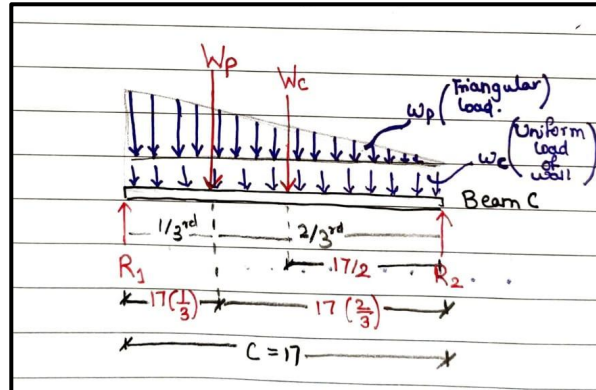 Wp
Wc
wp (Triangular load.
wc (Uniform load of wall)
Beam C
1/3rd
2/3rd
17/2
R1
R2
17(1/3)
17(2/3)
C=17